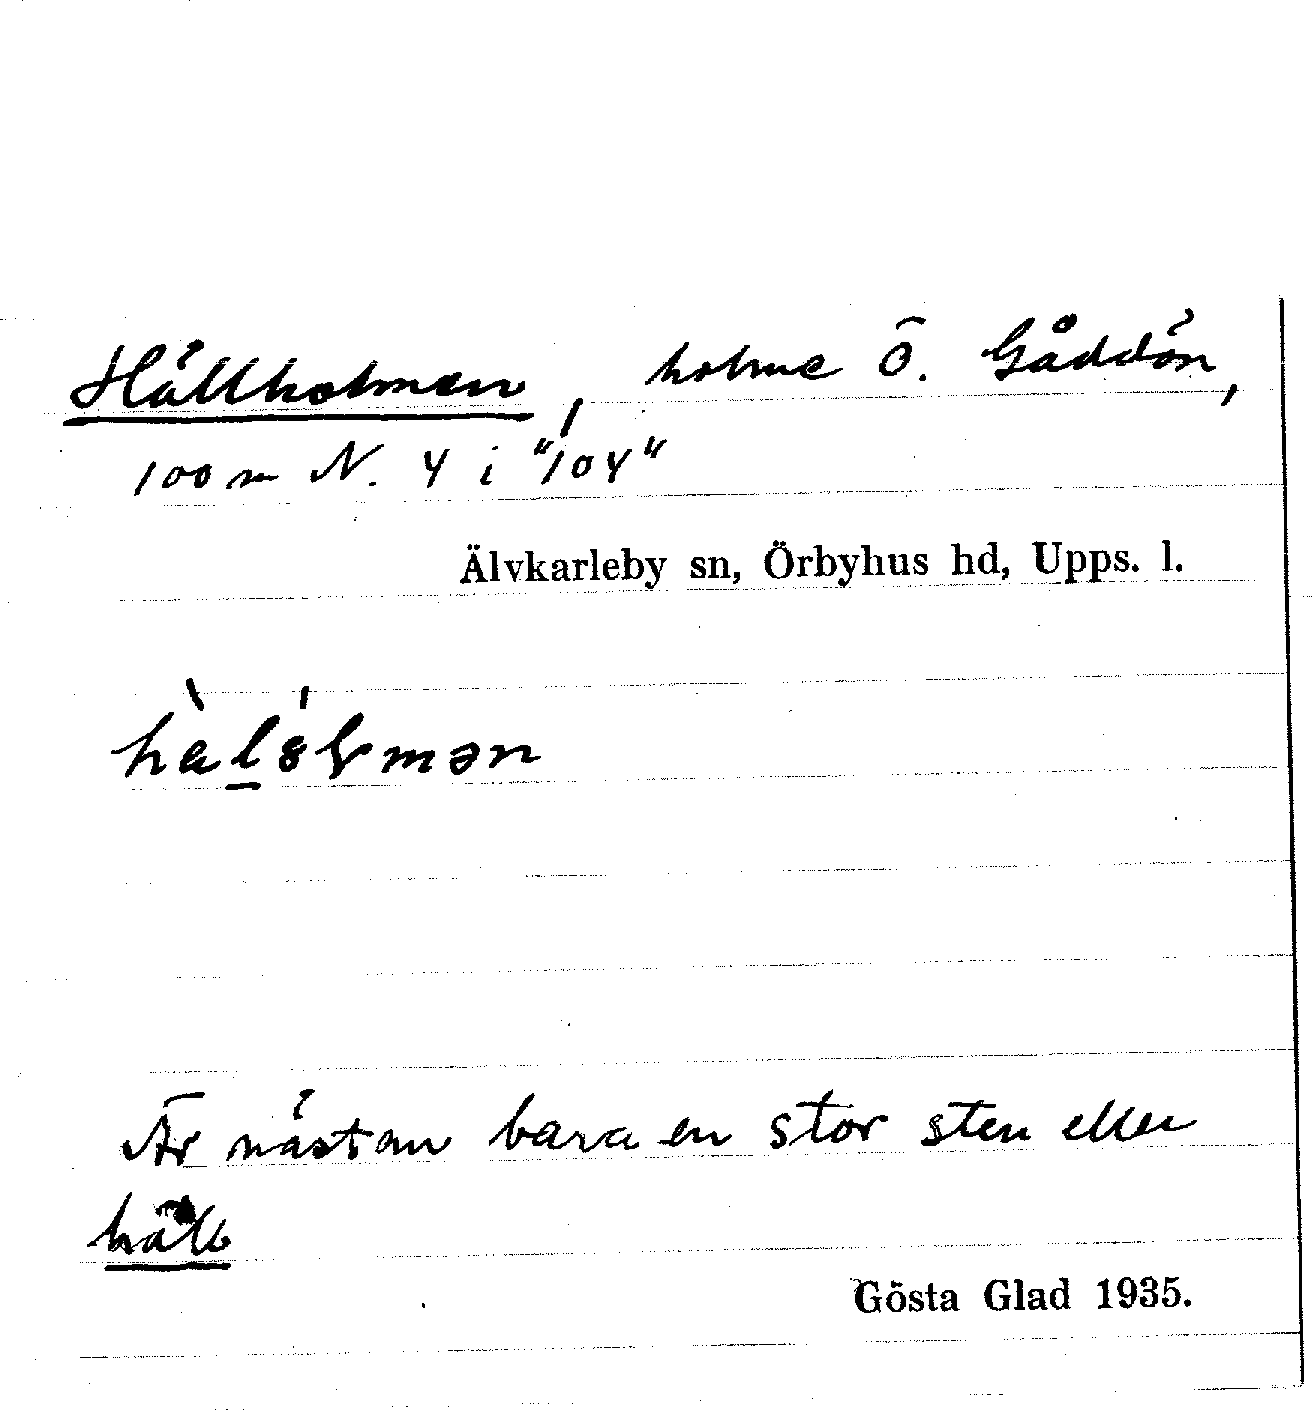 Hällholmen, holme Ö. Gåddön,
100 m N. Y i "104"
Älvkarleby sn, Örbyhus hd, Upps. l.
Är nästan bara en stor sten eller
häll
Gösta Glad 1935.